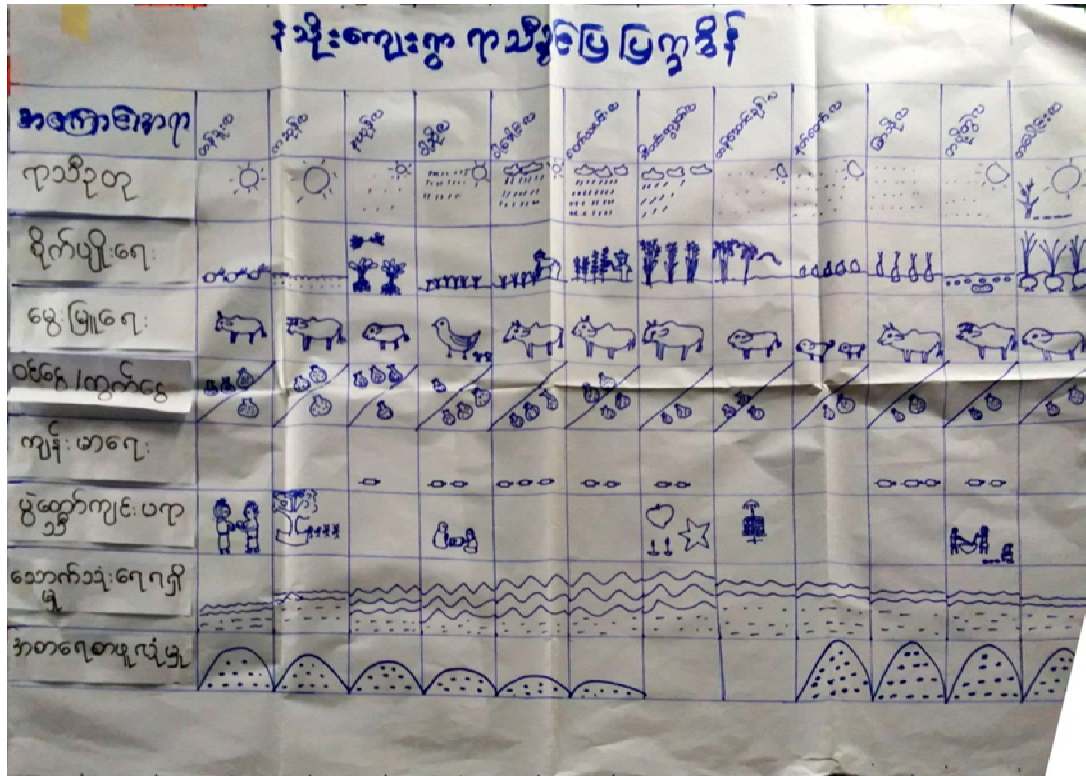 နသိုးကျေးရွာ ရာသီခွင်ပြ ပြက္ခဒိန်
အကြောင်းအရာ
တန်ခူးလ ကဆုန်လ နယုန်လ ဝါဆိုလ ဝါခေါင်လ တော်သလင်းလ သီတင်းကျွတ်လ တန်ဆောင်မုန်းလ နတ်တော်လ ပြာသိုလ တပို့တွဲလ တပေါင်းလ
ရာသီဥတု
စိုက်ပျိုးရေး
မွေးမြူရေး
ဝင်ငွေ/ထွက်ငွေ
ကျန်းမာရေး
ပွဲတော်
သောက်သုံးရေရရှိ
မှု
အစားရေစာဖူလုံမှု